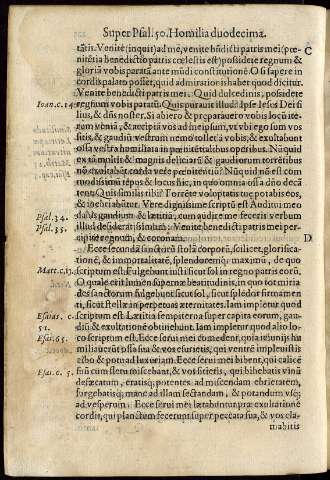 Super Psal. 50. Homilia duodecima.
tātis. Venite (inquit) ad me, venite bñdicti patris mei (pœ-
nitētia benedicto patris cœlestis est) possidete regnum &
gloriā vobis paratā ante mūdi constitutionē O si sapere in
cordis palato posset, quid admirationis habet quod dicitur.
Venite benedicti patris mei. Quid dulcedinis, possidete
regnum vobis paratū Quis parauit illud? Ipse Iesus Dei fi
lius, & dñs noster. Si abiero & præparauero vobis locū ite-
rum veniā, & accipiā vos ad meipsum, vt vbi ego sum vos
sitis, & gaudiū vestrum nemo tollet à vobis, & exultabunt
ossa vestra humiliata in pœnitētialibus operibus. Nūquid
ex tā multis & magnis deliciarū & gaudiorum torrētibus
nō exultabit corda verè pœnitentiū? Nūquid nō est com
modissimū tēpus & locus hic, in quo omnia ossa dño dicā
tur? Quis similis tibi? Torrēte voluptatis tuę potabis eos,
& inebriabūtur. Vere dignissime scriptū est Auditui meo
dabis gaudium & lætitiā, cum audire me feceris verbum
illud desideratissimum: Venite benedicti patris mei per-
cipite regnum, & coronam.
Ecce secunda sanctorū stola corporū, scilicet, glorifica-
tionē, & immortalitatē, splendoremq; maximū, de quo
scriptum est Fulgebunt iusti sicut sol in regno patris eorū.
O quale erit lumen supernæ beatitudinis, in quo tot miria
des sanctorum fulgebūt sicut sol, sicut splēdor firmamen
ti, sicut stellæ in perpetuas æternitates. Iam impletur quod
scriptum est Lætitia sempiterna super capita eorum, gau-
diū & exultationē obtinebunt. Iam impletur quod alio lo-
co scriptum est: Ecce serui mei comedent, quia ieiuniis hu
miliauerūt ossa sua, & vos esurietis, qui ventrē impleuistis
echo & potu ad luxuriam. Ecce serui mei bibent, qui calicē
suū cum fletu miscebant, & vos sitietis, qui bibebatis vinū
defæcatum, eratisq; potentes ad miscendam ebrietatem,
surgebatisq; mane ad illam sectandam, & potandum vsq;
ad vesperum: Ecce serui mei lætabuntur præ exultatione
cordis, qui planctum fecerunt super peccata sua, & vos cla-
mabitis
C
D
Ioan. c. 14.
Psal. 34.
Psal. 35.
Matt. c. 13.
Esaiæ. c.
51.
Esai. 65.
Esai. c. 5.